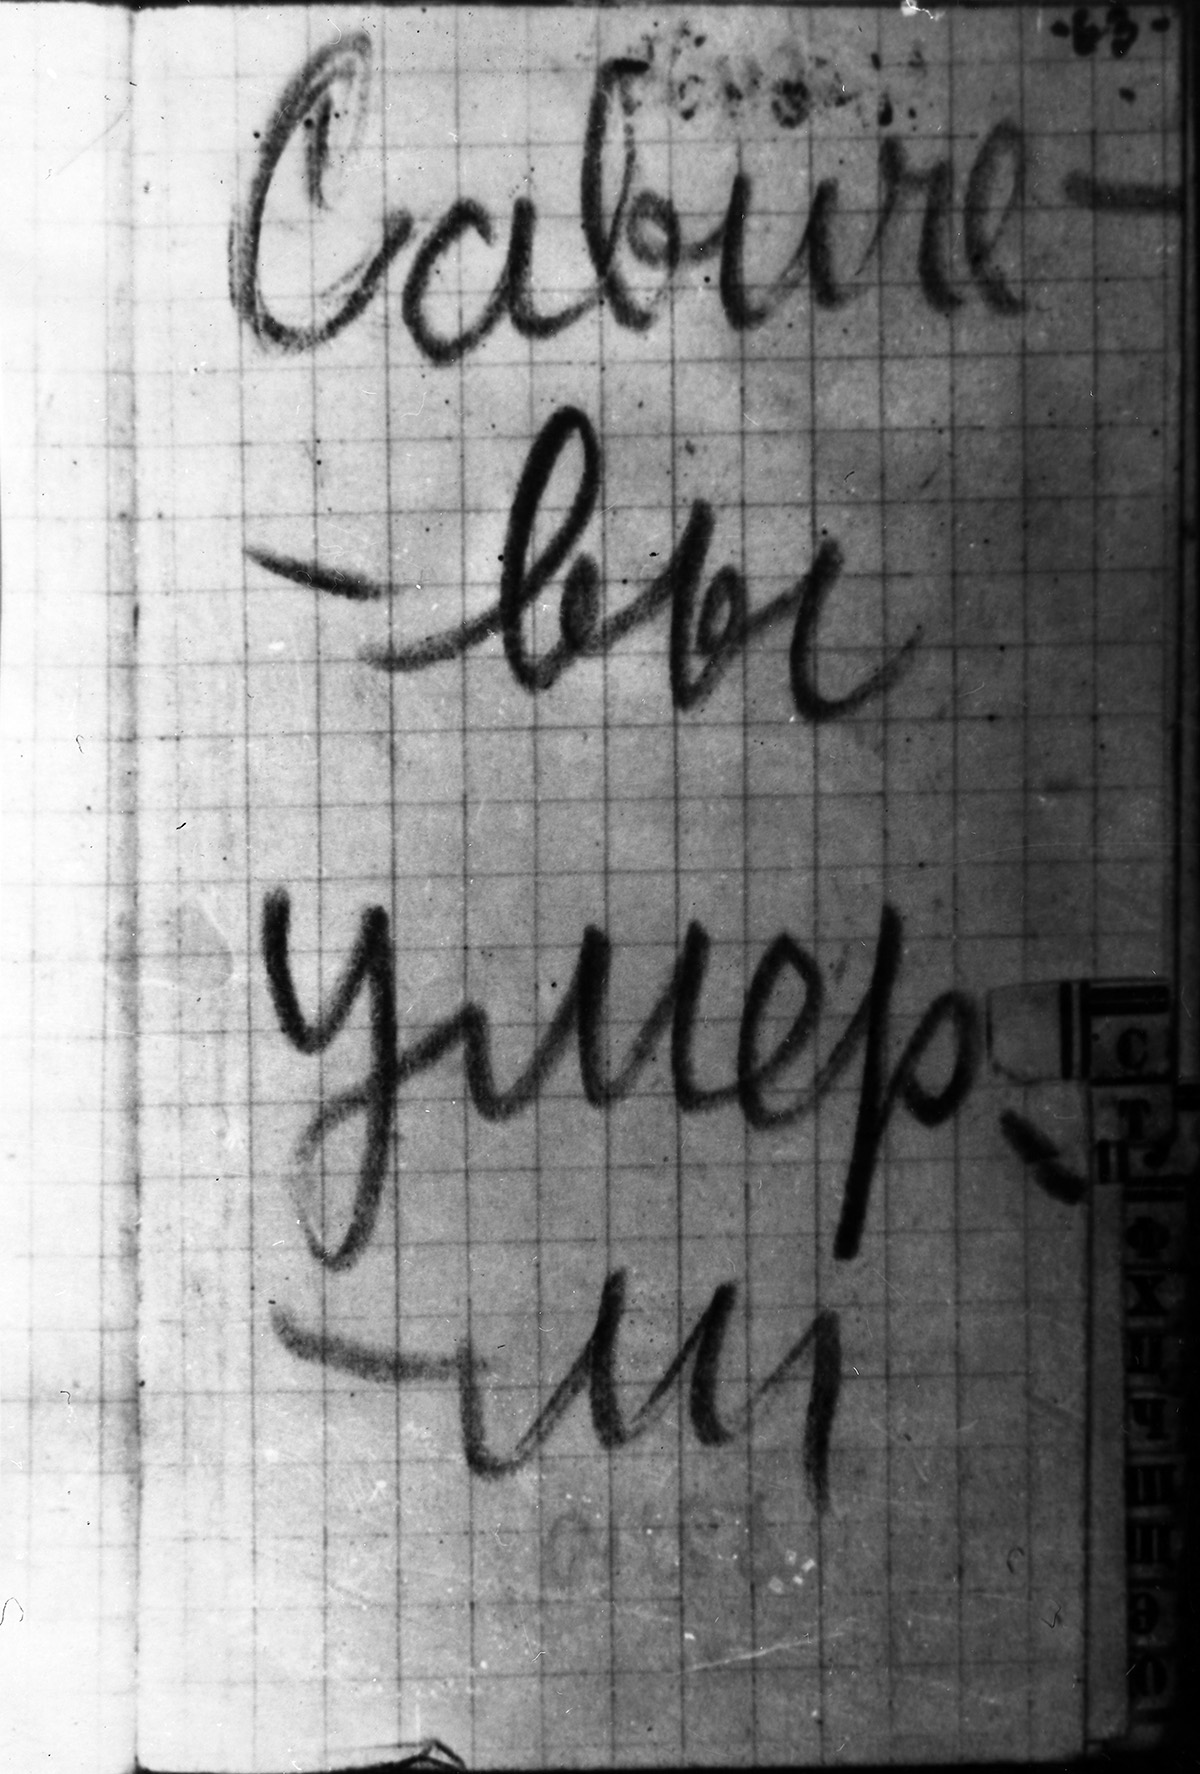 Савиче-
-вы
умер-
-ли
С
Т
Ф
Х